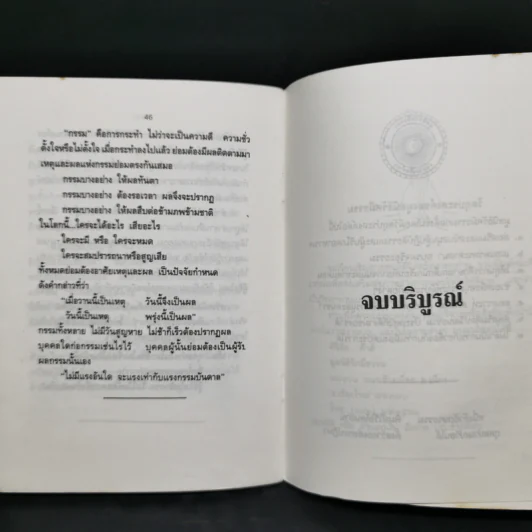 46
"กรรม" คือการกระทำ ไม่ว่าจะเป็นความดี ความชั่ว
ตั้งใจหรือไม่ตั้งใจ เมื่อกระทำลงไปแล้ว ย่อมต้องมีผลติดตามมา
เหตุและผลแห่งกรรมย่อมตรงกันเสมอ
กรรมบางอย่าง ให้ผลทันตา
กรรมบางอย่าง ต้องรอเวลา ผลจึงจะปรากฏ
กรรมบางอย่าง ให้ผลสืบต่อข้ามภพข้ามชาติ
ในโลกนี้...ใครจะได้อะไร เสียอะไร
ใครจะมี หรือ ใครจะหมด
ใครจะสมปรารถนาหรือสูญเสีย
ทั้งหมดย่อมต้องอาศัยเหตุและผล เป็นปัจจัยกำหนด
ดังคำกล่าวที่ว่า
"เมื่อวานนี้เป็นเหตุ วันนี้จึงเป็นผล
วันนี้เป็นเหตุ พรุ่งนี้เป็นผล"
กรรมทั้งหลาย ไม่มีวันสูญหาย ไม่ช้าก็เร็วต้องปรากฏผล
บุคคลใดก่อกรรมเช่นไรไว้ บุคคลผู้นั้นย่อมต้องเป็นผู้รับ
ผลกรรมนั้นเอง
"ไม่มีแรงอันใด จะแรงเท่ากับแรงกรรมบันดาล"
จบบริบูรณ์